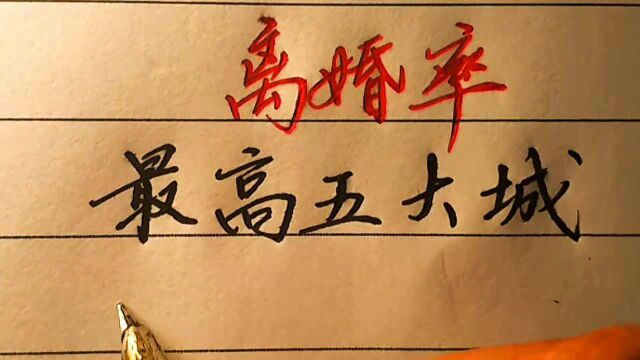 离婚率
最高五大城